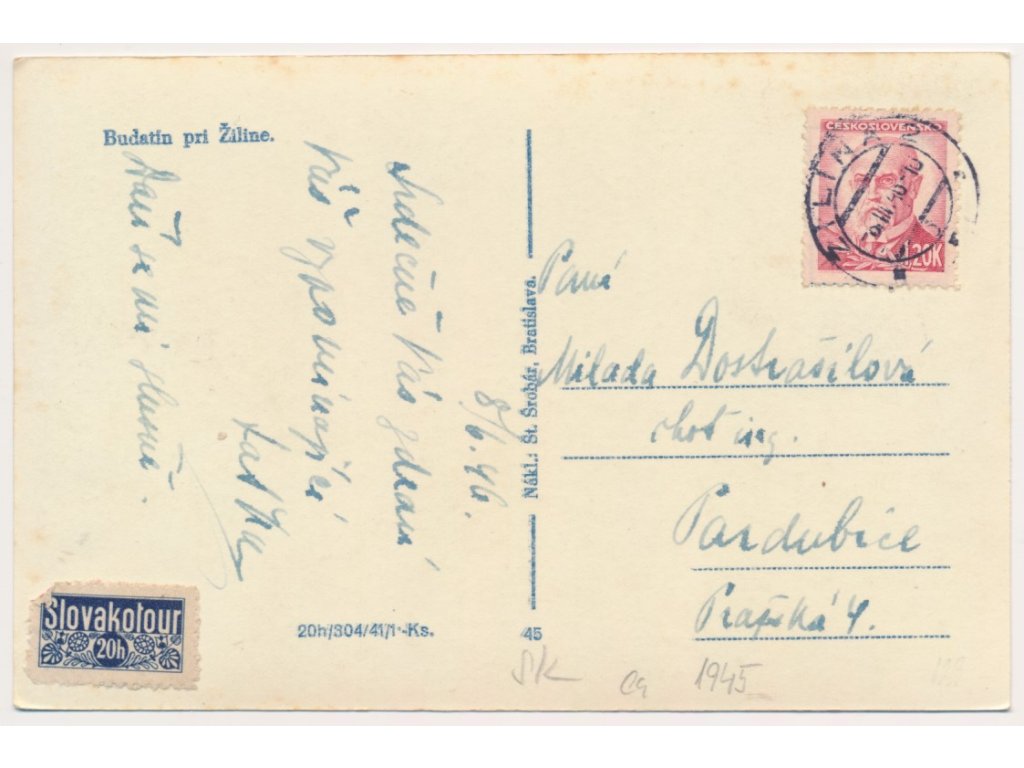 Budatín pri Žiline.
Srdečně Vás zdraví
Váš vzpomínající
Daří se mi
8/6.46.
Nákl.: Št. Šrobár, Bratislava.
ČESKOSLOVENSKO
1,20K
ŽILINA 2
Paní
Milada Dostrašilová
choť ing.
Pardubice
Pražská 4.
Slovakotour
20h
20h/304/41/I·-Ks.
45
SK
ca 1945